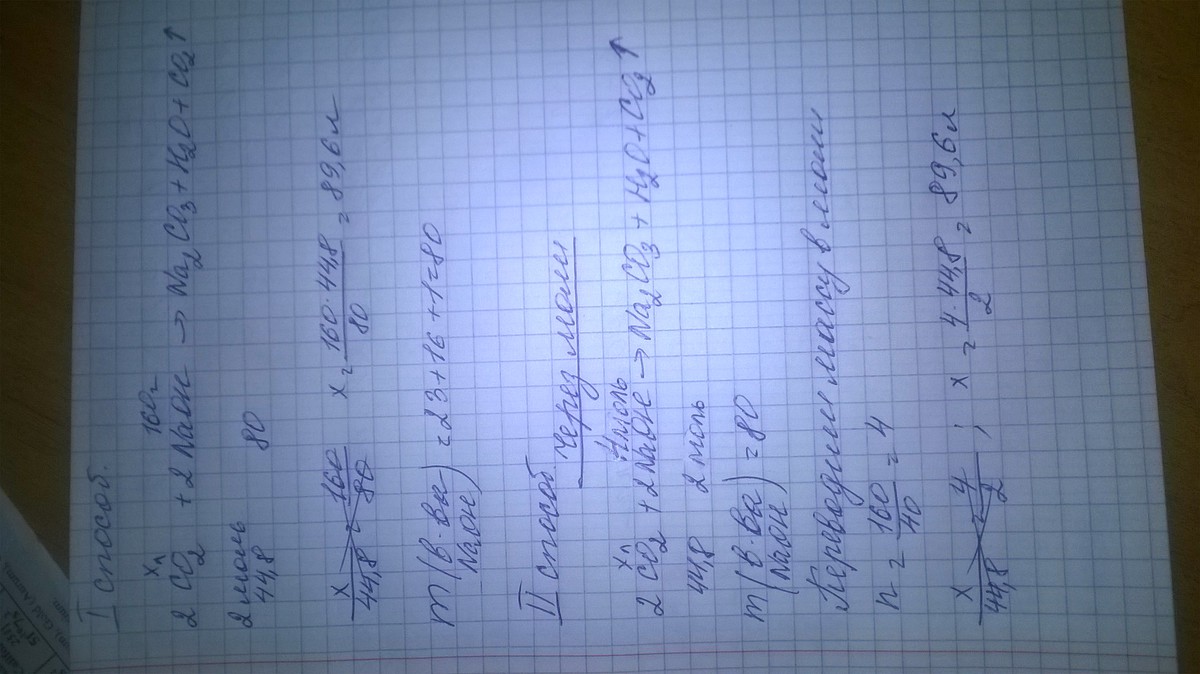 I способ.
xл 160г
2 CO2 + 2 NaOH → Na2CO3 + H2O + CO2↑
2 моль 80
44,8
x/44,8 = 160/80 x = 160 · 44,8/80 = 89,6 л
m (в-ва NaOH) = 23 + 16 + 1 = 80
II способ Через моли
xл 4 моль
2 CO2 + 2 NaOH → Na2CO3 + H2O + CO2↑
44,8 2 моль
m (в-ва NaOH) = 80
Переводим массу в моли
n = 160/40 = 4
x/44,8 = 4/2 ; x = 4 · 44,8/2 = 89,6 л